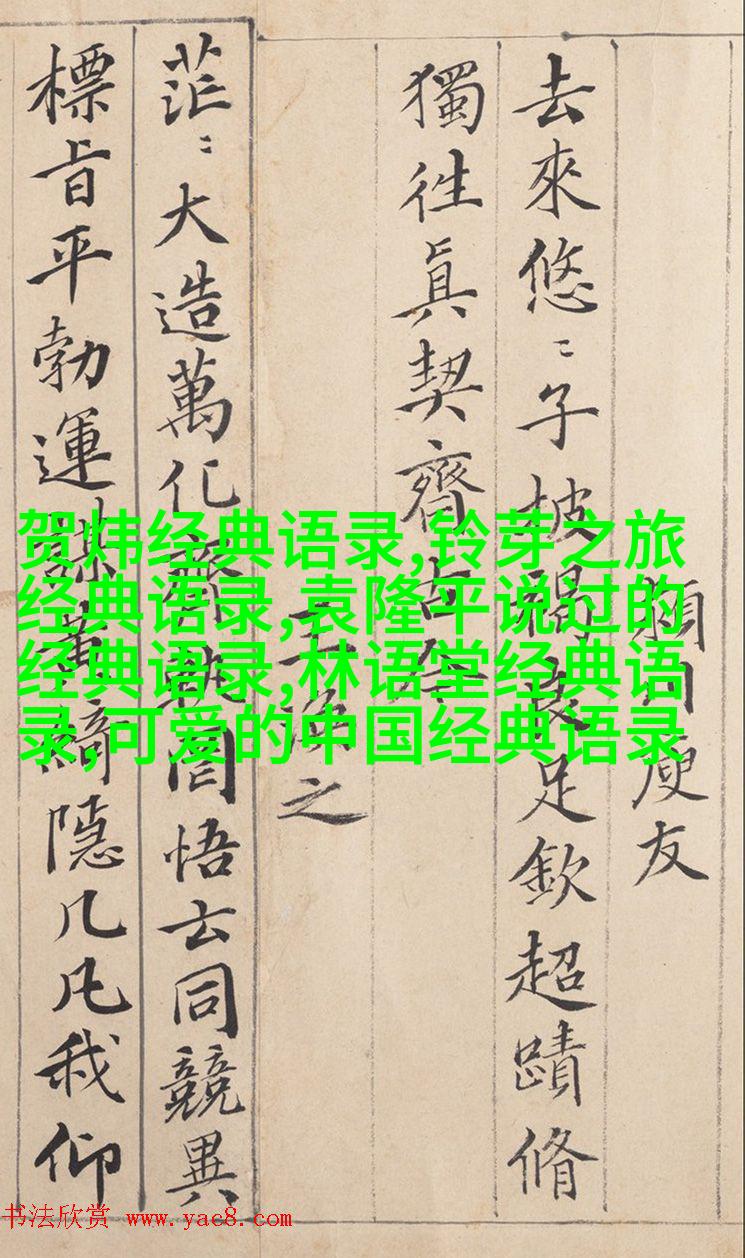 潁川庾友
去來悠〻子披褐良足欽超蹟脩
獨往眞契齊古今
王渙之
茫〻大造萬化齊軌罔悟玄同競異
標旨平勃運謀黃綺隱几凡我仰
贺炜经典语录,铃芽之旅
经典语录,袁隆平说过的
经典语录,林语堂经典语
录,可爱的中国经典语录
书法欣赏 www.yac8.com